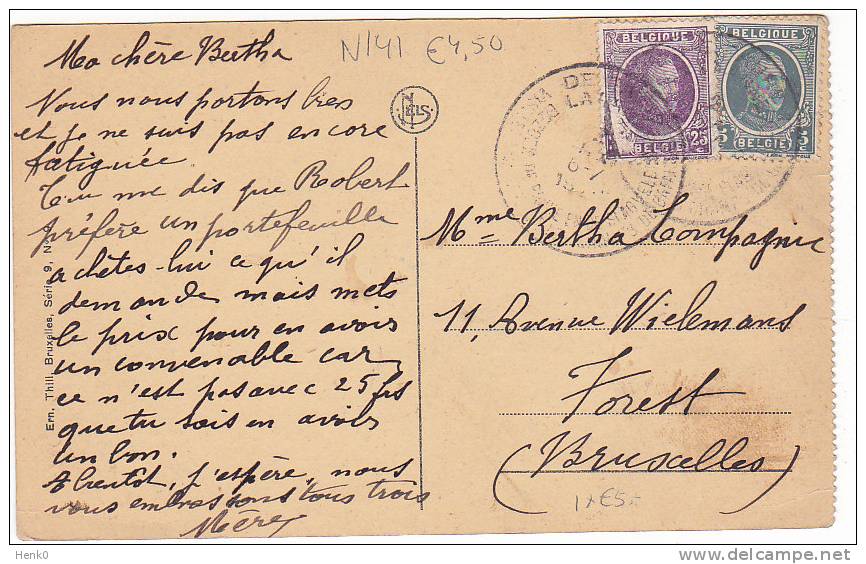 Ma chère Bertha
N/41 €4,50
Vous nous portons bres
et je ne suis pas encore
fatiguée.
Tu me dis que Robert
préfère un portefeuille
achètes-lui ce qu'il
demande mais mets
le prix pour en avoir
un convenable car
ce n'est pas avec 25 frs
que tu sais en avoir
un bon.
A bientôt, j'espère, nous
vous embrassons tous trois
Mère
Ern. Thill, Bruxelles, Série 9, N
NELS
BELGIQUE
25 c
BELGIË
BELGIQUE
5 c
BELGIË
DE
Mme Bertha Compagnie
11, Avenue Wielemans
Forest
(Bruxelles)
1x€5-
Henk0
www.delcampe.net